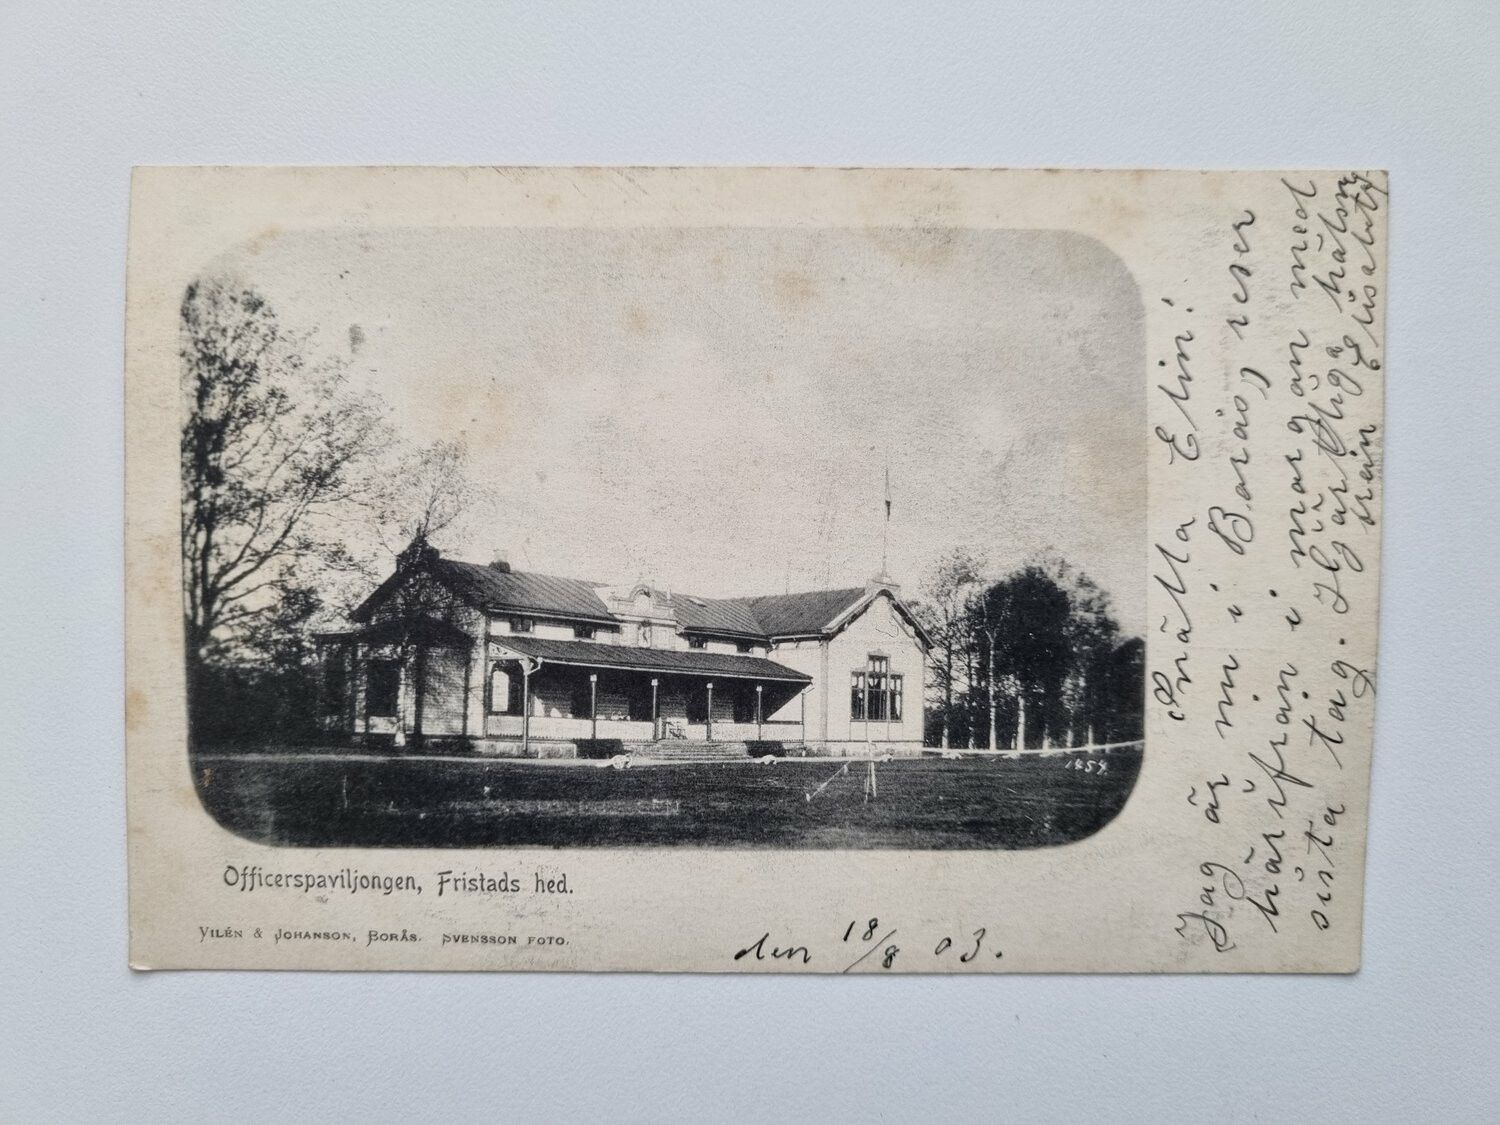 Officerspaviljongen, Fristads hed.
Vilén & Johanson, Borås. Svensson foto.
1454.
den 18/8 03.
Snälla Elin!
Jag är nu i Borås, reser
härifrån i morgon med
sista tåg. Hjärtliga hälsn
från Elisabeth